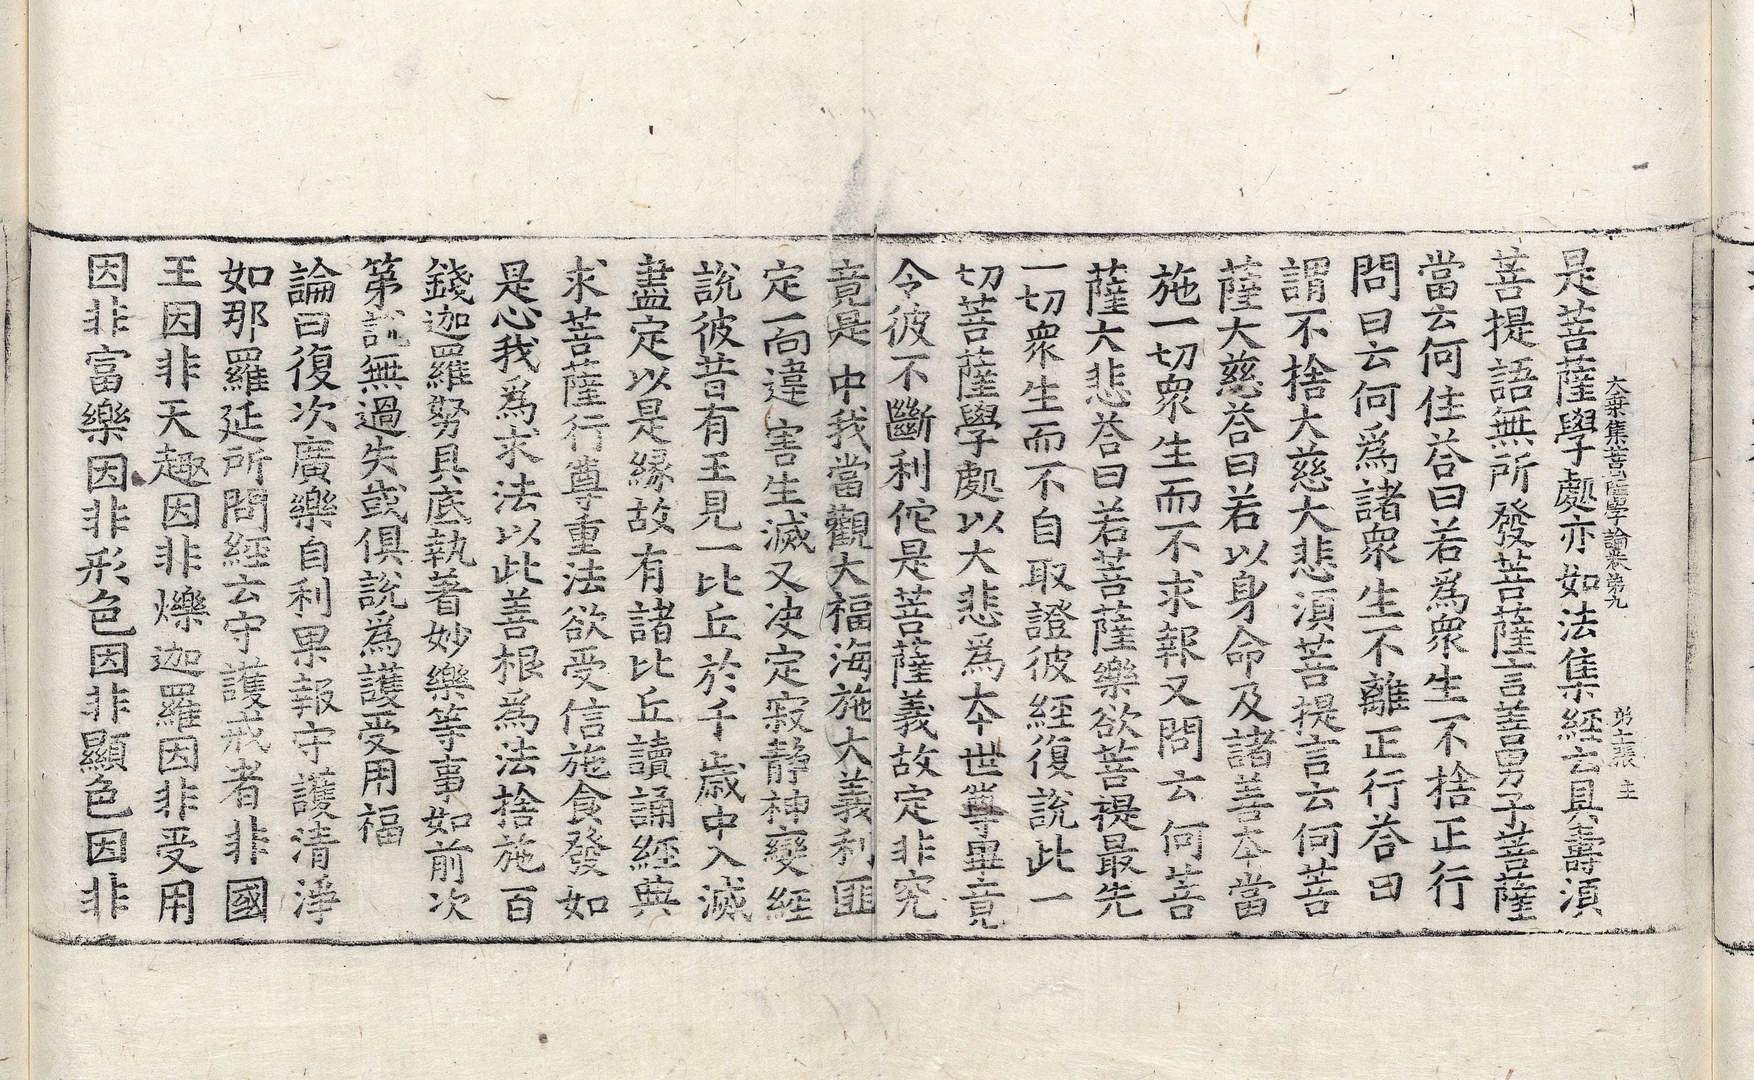 大乗集菩薩學論卷第九 第十二張 主
是菩薩學處亦如法集經云具壽湏
菩提語無所發菩薩言善男子菩薩
當云何住荅曰若爲衆生不捨正行
問曰云何爲諸衆生不離正行荅曰
謂不捨大慈大悲湏菩提言云何菩
薩大慈荅曰若以身命及諸善本當
施一切衆生而不求報又問云何菩
薩大悲荅曰若菩薩樂欲菩提最先
一切衆生而不自取證彼經復說此一
切菩薩學處以大悲爲本世尊畢竟
令彼不斷利佗是菩薩義故定非究
竟是中我當觀大福海施大義利匪
定一向違害生滅又决定寂静神變經
說彼昔有王見一比丘於千歲中入滅
盡定以是縁故有諸比丘讀誦經典
求菩薩行尊重法欲受信施食發如
是心我爲求法以此善根爲法捨施百
錢迦羅努具底執着妙樂等事如前次
第說無過失或俱說為護受用福
論曰復次廣樂自利果報守護清淨
如那羅延所問經云守護戒者非國
王因非天趣因非爍迦羅因非受用
因非富樂因非形色因非顯色因非